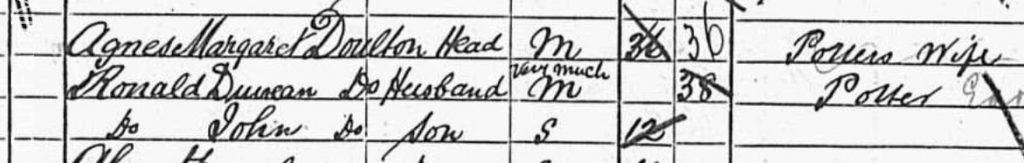 Agnes Margaret Doulton Head M 36 36 Potters Wife
Ronald Duncan Do Husband very much M 38 Potter
Do John Do Son S 12